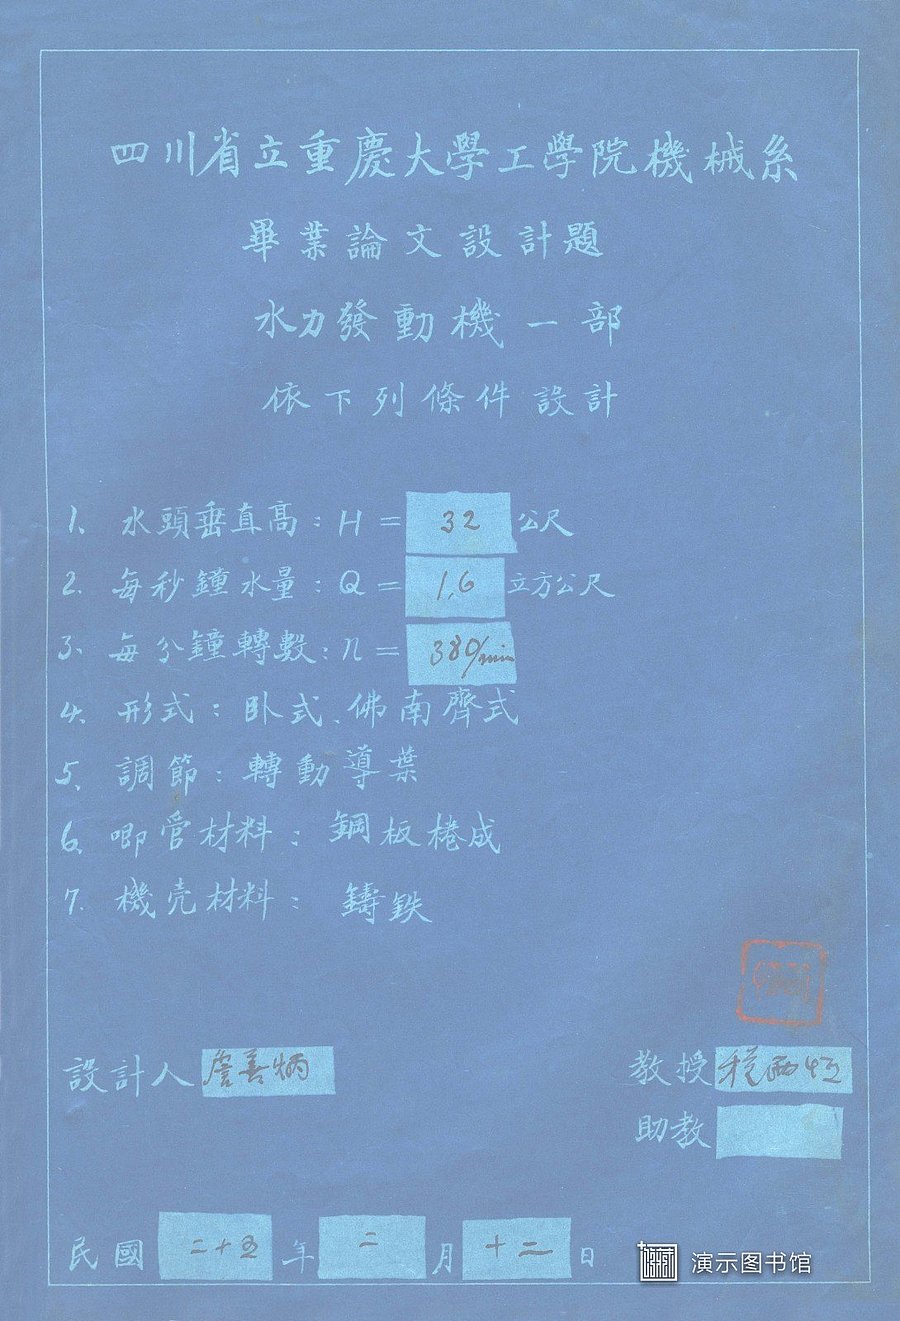 四川省立重慶大學工學院機械系
畢業論文設計題
水力發動機一部
依下列條件設計
1、水頭垂直高：H＝32公尺
2、每秒鐘水量：Q＝1.6立方公尺
3、每分鐘轉數：n＝380/min
4、形式：卧式、佛南齊式
5、調節：轉動導葉
6、唧管材料：鋼板棬成
7、機壳材料：鑄鉄
設計人 詹善炳
教授
助教
民國 二十五 年 二 月 十二 日
演示图书馆